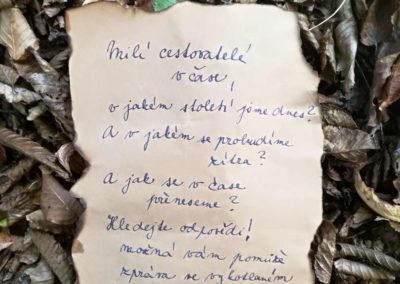 Milí cestovatelé
v čase,
v jakém století jsme dnes?
A v jakém se probudíme
zítra?
A jak se v čase
přeneseme?
Hledejte odpovědi!
možná vám pomůže
zpráva ve vykotlaném